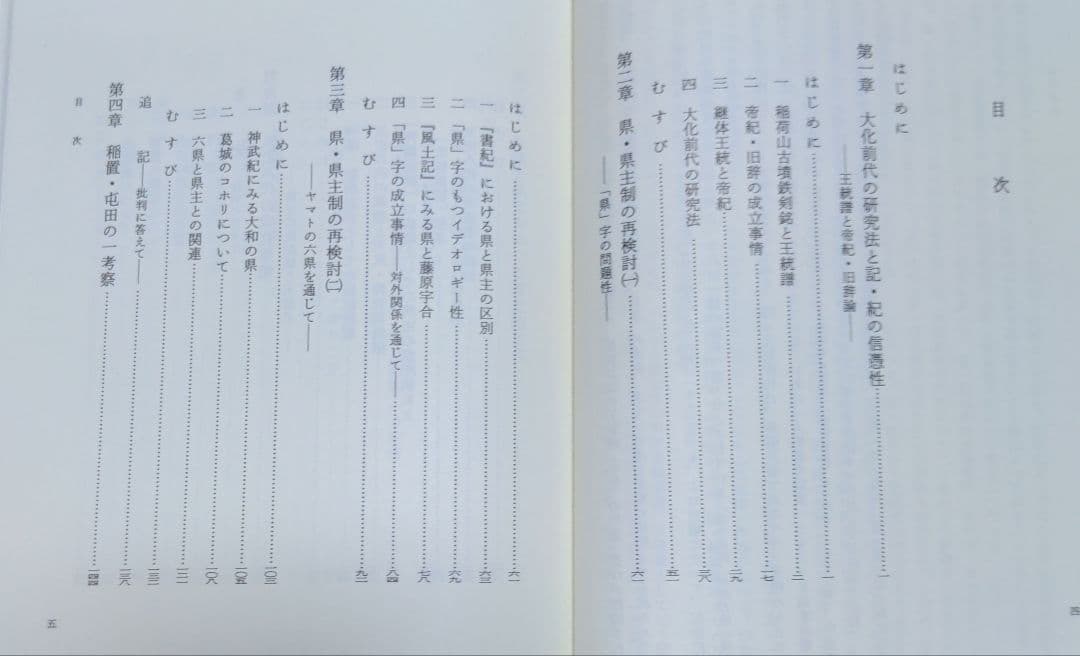 目次
はじめに
第一章 大化前代の研究法と記・紀の信憑性……一
――王統譜と帝紀・旧辞論――
はじめに……一
一 稲荷山古墳鉄剣銘と王統譜……二
二 帝紀・旧辞の成立事情……一七
三 継体王統と帝紀……二九
四 大化前代の研究法……三八
むすび……五一
第二章 県・県主制の再検討(一)……六一
――「県」字の問題性――
四
はじめに……六一
一 『書紀』における県と県主の区別……六三
二 「県」字のもつイデオロギー性……六九
三 『風土記』にみる県と藤原宇合……七八
四 「県」字の成立事情――対外関係を通じて――……八四
むすび……九二
第三章 県・県主制の再検討(二)
――ヤマトの六県を通じて――
はじめに……一〇三
一 神武紀にみる大和の県……一〇五
二 葛城のコホリについて……一〇八
三 六県と県主との関連……一二一
むすび……一三二
追記――批判に答えて――……一三八
第四章 稲置・屯田の一考察……一四四
目次
五